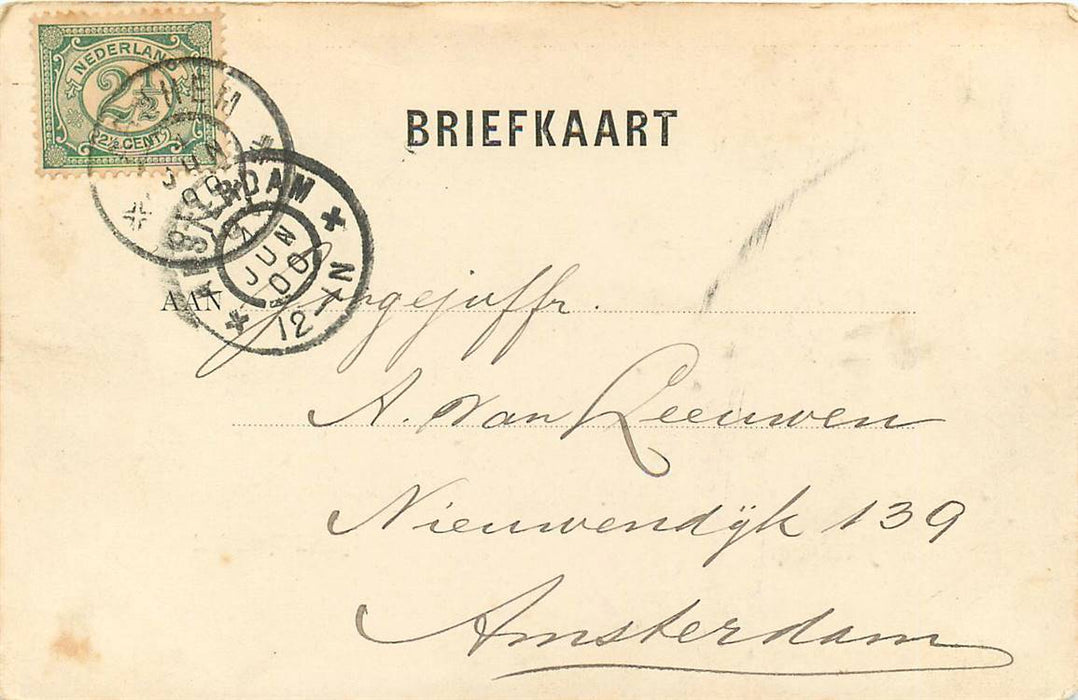 NEDERLAND
2½
2½ CENT
JUN
00
AMSTERDAM
1
JUN
00
12-1N
BRIEFKAART
AAN Jongejuffr.
A. van Leeuwen
Nieuwendijk 139
Amsterdam